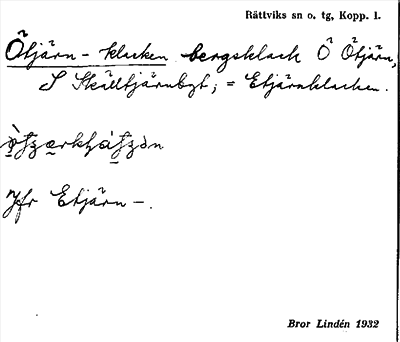 Rättviks sn o. tg, Kopp. l.
Ötjärn-klacken bergsklack Ö Ötjärn,
S Skålltjärnbgt; = Etjärnklacken.
Jfr Etjärn-.
Bror Lindén 1932